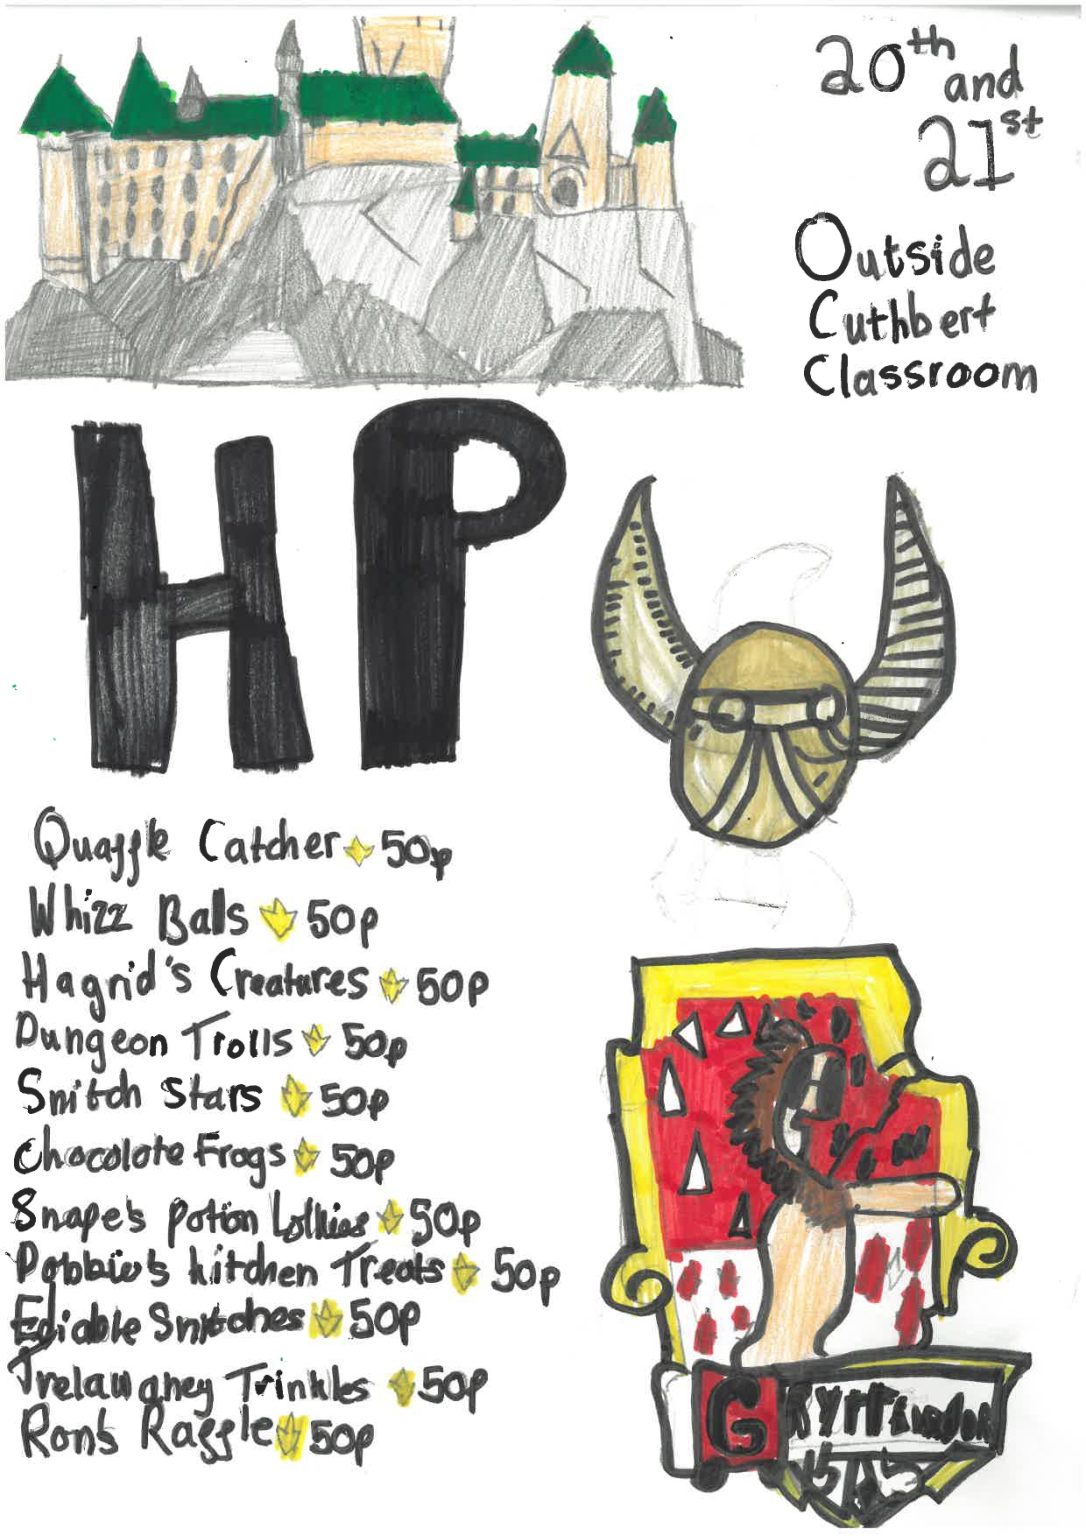 20th and
21st
Outside
Cuthbert
Classroom
HP
Quaffle Catcher 50p
Whizz Balls 50p
Hagrid's Creatures 50p
Dungeon Trolls 50p
Snitch Stars 50p
Chocolate Frogs 50p
Snape's Potion Lollies 50p
Dobbie's kitchen Treats 50p
Ediable Snitches 50p
Trelawaney Trinkles 50p
Ron's Raffle 50p
G